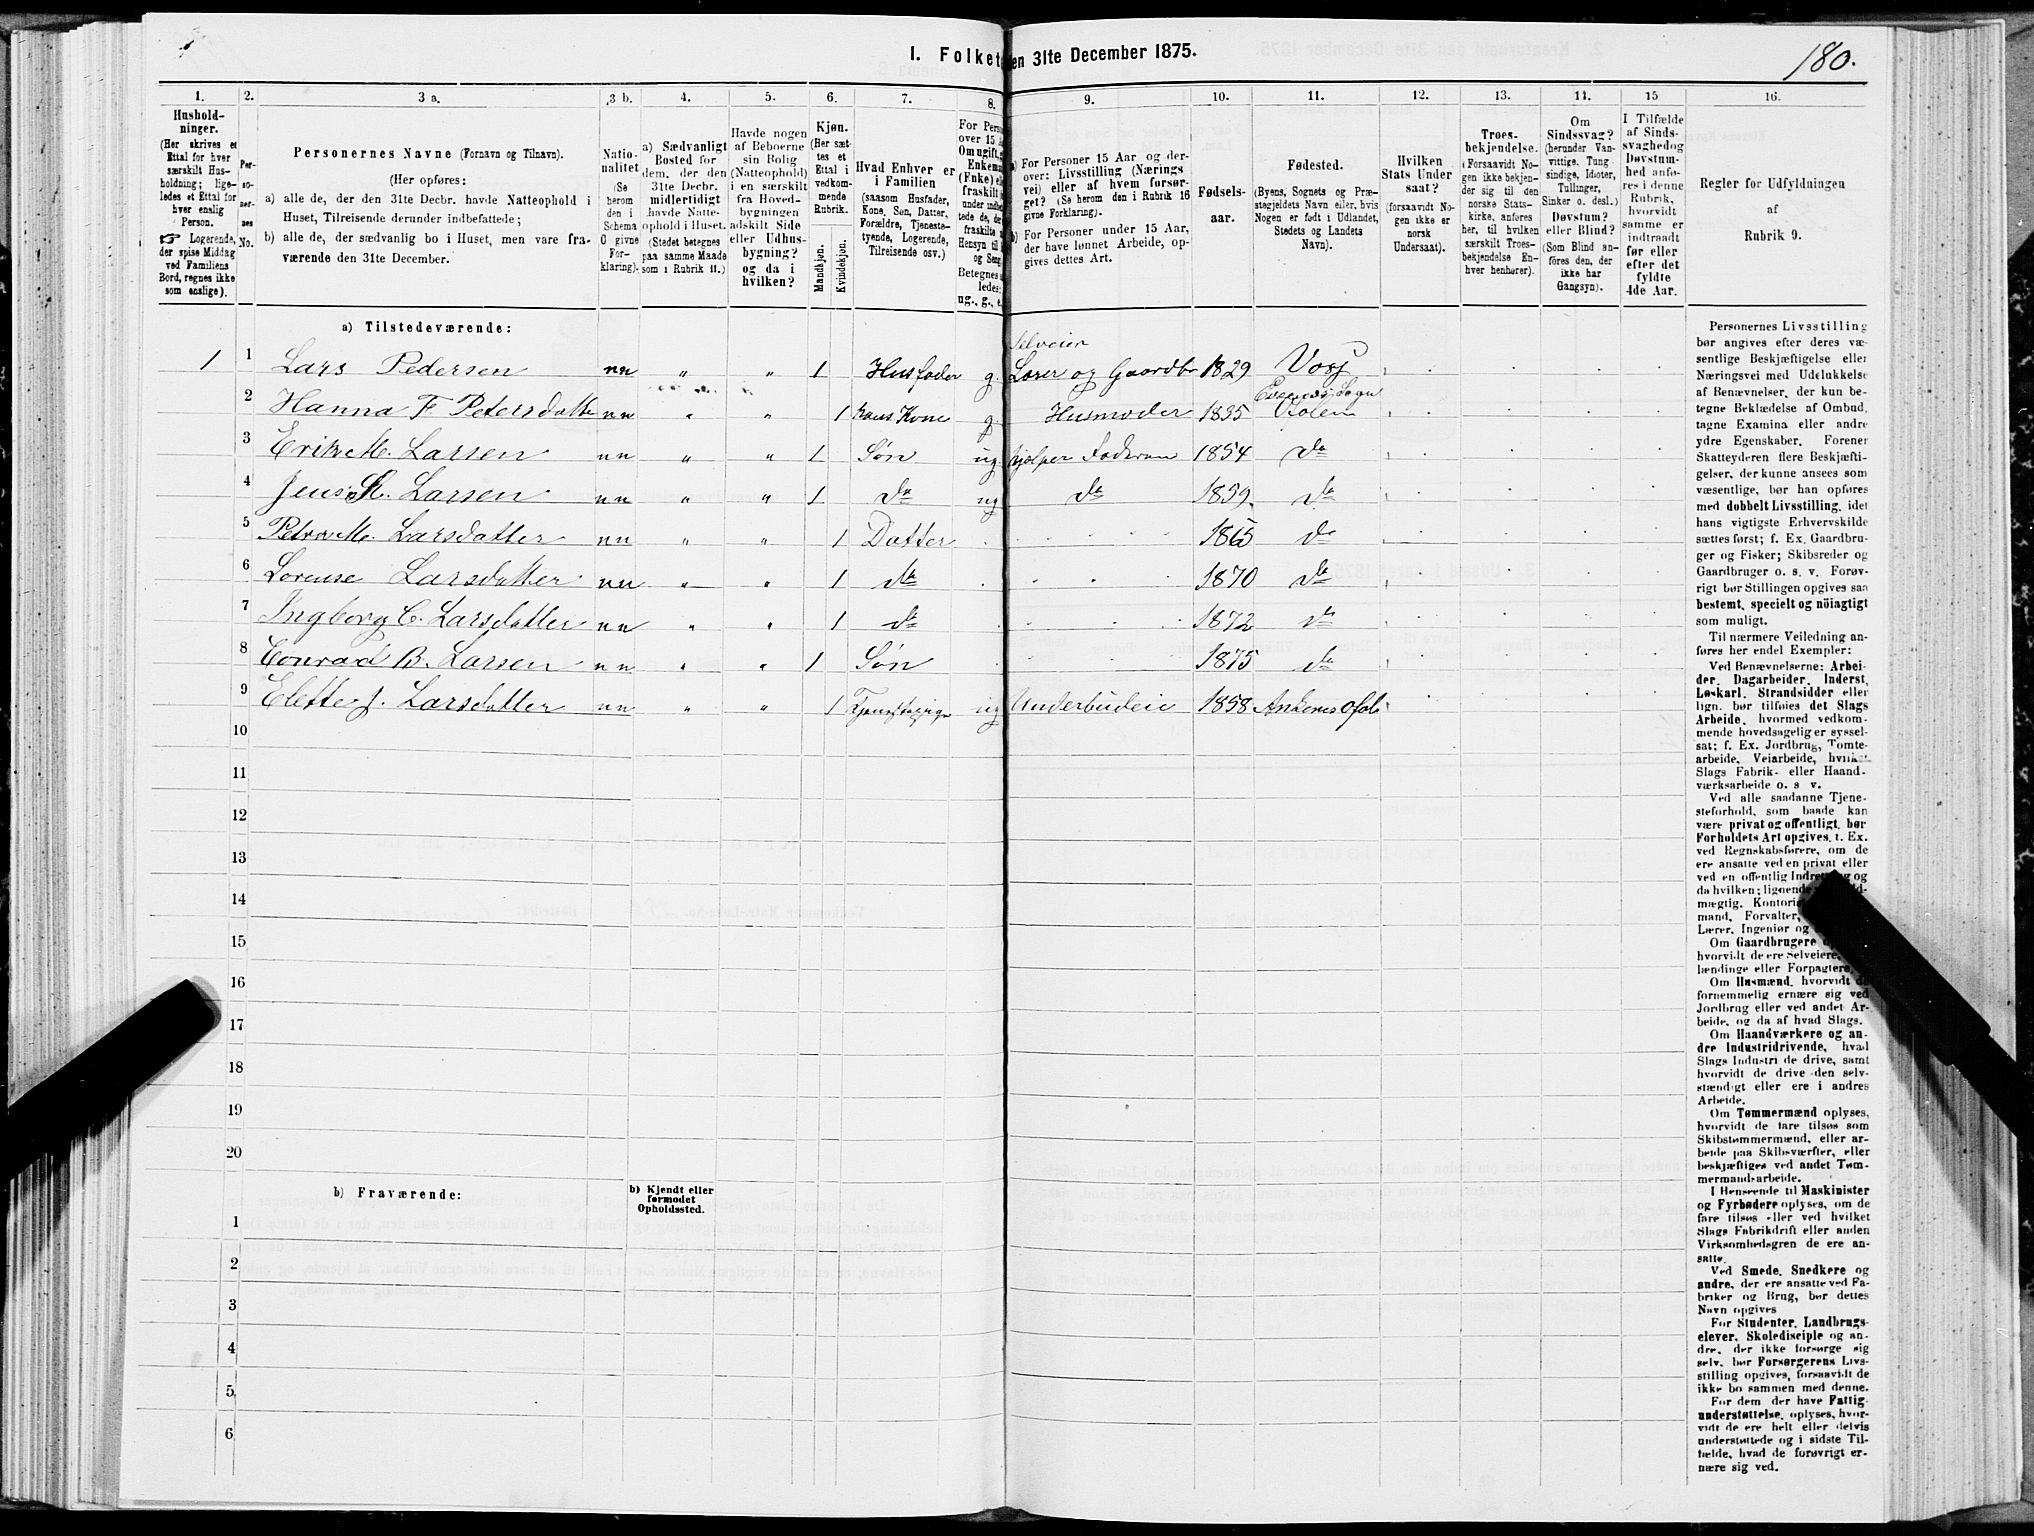 I. Folket en 31te December 1875.
180.
1. 2. 3 a. 3 b. 4. 5. 6. 7. 8. 9. 10. 11. 12. 13. 14. 15 16.
Hushold-
ninger.
(Her skrives et
Ettal for hver
særskilt Hus-
holdning; lige-
ledes et Ettal for
hver enslig
Person.
☞ Logerende,
der spise Middag
ved Familiens
Bord, regnes ikke
som enslige).
Per-
so-
ner-
nes
No.
Personernes Navne (Fornavn og Tilnavn).
(Her opføres:
a) alle de, der den 31te Decbr. havde Natteophold i
Huset, Tilreisende derunder indbefattede;
b) alle de, der sædvanlig bo i Huset, men vare fra-
værende den 31te December.
Natio-
nalitet
(Se
herom
den i
Schema
0 givne
For-
klaring).
a) Sædvanligt
Bosted for
dem, der den
31te Decbr.
midlertidigt
havde Natte-
ophold i Huset.
(Stedet betegnes
paa samme Maade
som i Rubrik 11.)
Havde nogen
af Beboerne
sin Bolig
(Natteophold)
i en særskilt
fra Hoved-
bygningen
adskilt Side
eller Udhus-
bygning?
og da i
hvilken?
Kjøn.
(Her sæt-
tes et
Ettal i
vedkom-
mende
Rubrik.
Mandkjøn.
Kvindekjøn.
Hvad Enhver er
i Familien
(saasom Husfader,
Kone, Søn, Datter,
Forældre, Tjeneste-
tyende, Logerende,
Tilreisende osv.)
For Perso
over 15
Om ugift,
Enkema
(Enke) e
fraskilt
under
tede de, d
fraskilte
Hensyn til
og Seng
Betegnes
ledes:
ug., g., e.
a) For Personer 15 Aar og der-
over: Livsstilling (Nærings
vei) eller af hvem forsør-
get? (Se herom den i Rubrik 16
givne Forklaring).
b) For Personer under 15 Aar,
der have lønnet Arbeide, op-
gives dettes Art.
Fødsels-
aar.
Fødested.
(Byens, Sognets og Præ-
stegjeldets Navn eller, hvis
Nogen er født i Udlandet,
Stedets og Landets
Navn).
Hvilken
Stats Under
saat?
(forsaavidt No-
gen ikke er
norsk
Undersaat).
Troes-
bekjendelse.
(Forsaavidt No-
gen ikke bekjen-
der sig til den
norske Stats-
kirke, anføres
her, til hvilken
særskilt Troes-
bekjendelse En-
hver henhører).
Om
Sindssvag?
(herunder Van-
vittige, Tung
sindige, Idioter,
Tullinger,
Sinker o. desl.)
Døvstum?
eller Blind?
(Som Blind an-
föres den, der
ikke har
Gangsyn).
I Tilfælde
af Sinds-
svaghed og
Døvstum-
hed anfø-
res i denne
Rubrik,
hvorvidt
samme er
indtraadt
før eller
efter det
fyldte
4de Aar.
Regler for Udfyldningen
af
Rubrik 9.
a) Tilstedeværende:
Selveier
1 1 Lars Pedersen nn „ „ 1 Husfader g. Loser og Gaardbr 1829 Voss
Evenes Sogn
2 Hanna F Petersdatter nn „ „ 1 hans Kone g. Husmoder 1835
3 Erik M. Larsen nn „ „ 1 Søn ug. hjelper Faderen 1854 do
4 Jens Larsen nn „ „ 1 do ug do 1859 do
5 Petra M. Larsdatter nn „ „ 1 Datter 1865 do
6 Lorense Larsdatter nn „ „ 1 do 1870 do
7 Ingborg C. Larsdatter nn „ „ 1 do 1872 do
8 Conrad B. Larsen nn „ „ 1 Søn 1875 do
9 Elette J. Larsdatter nn „ „ 1 Tjenestepige ug Underbudeie 1858 Ankenes Ofot
10
11
12
13
14
15
16
17
18
19
20
b) Fraværende:
b) Kjendt eller
formodet
Opholdssted.
1
2
3
4
5
6
Personernes Livsstilling
bør angives efter deres væ-
sentlige Beskjæftigelse eller
Næringsvei med Udelukkelse
af Benævnelser, der kun be-
tegne Beklædelse af Ombud,
tagne Examina eller andre
ydre Egenskaber. Forener
Skatteyderen flere Beskjæfti-
gelser, der kunne ansees som
væsentlige, bør han opføres
med dobbelt Livsstilling, idet
hans vigtigste Erhvervskilde
sættes først; f. Ex. Gaardbru-
ger og Fisker; Skibsreder og
Gaardbruger o. s. v. Forøv-
rigt bør Stillingen opgives saa
bestemt, specielt og nöiagtigt
som muligt.
Til nærmere Veiledning an-
føres her endel Exempler:
Ved Benævnelserne: Arbei-
der, Dagarbeider, Inderst,
Løskarl, Strandsidder eller
lign. bør tilføies det Slags
Arbeide, hvormed vedkom-
mende hovedsagelig er syssel-
sat; f. Ex. Jordbrug, Tomte-
arbeide, Veiarbeide, hvilket
Slags Fabrik- eller Haand-
værksarbeide o. s v.
Ved alle saadanne Tjene-
steforhold, som baade kan
være privat og offentligt, bør
Forholdets Art opgives, t. Ex.
ved Regnskabsførere, om de
ere ansatte ved en privat eller
ved en offentlig Indretning og
da hvilken; lignende
mægtig, Kontorist
mand, Forvalter,
Lærer, Ingeniør og
Om Gaardbrugere
hvorvidt de ere Selveiere,
lændinge eller Forpagtere.
Om Husmænd, hvorvidt de
fornemmelig ernære sig ved
Jordbrug eller ved andet Ar-
beide, og da af hvad Slags.
Om Haandværkere og an-
dre Industridrivende, hvad
Slags Industri de drive, samt
hvorvidt de drive den selv-
stændigt eller ere i andres
Arbeide.
Om Tømmermænd oplyses,
hvorvidt de fare tilsøs som
Skibstømmermænd, eller ar-
beide paa Skibsværfter, eller
beskjæftiges ved andet Tøm-
mermandsarbeide.
I Henseende til Maskinister
og Fyrbødere oplyses, om de
fare tilsøs eller ved hvilket
Slags Fabrikdrift eller anden
Virksomhedsgren de ere an-
satte.
Ved Smede, Snedkere og
andre, der ere ansatte ved Fa-
briker og Brug, bør dettes
Navn opgives
For Studenter, Landbrugs-
elever, Skoledisciple og an-
dre, der ikke forsørge sig
selv, bør Forsørgerens Livs-
stilling opgives, forsaavidt de
ikke bo sammen med denne.
For dem der have Fattig-
understøttelse, oplyses, hvor-
vidt de ere helt eller delvis
understøttede og i sidste Til-
fælde, hvad de forøvrigt er-
nære sig ved.